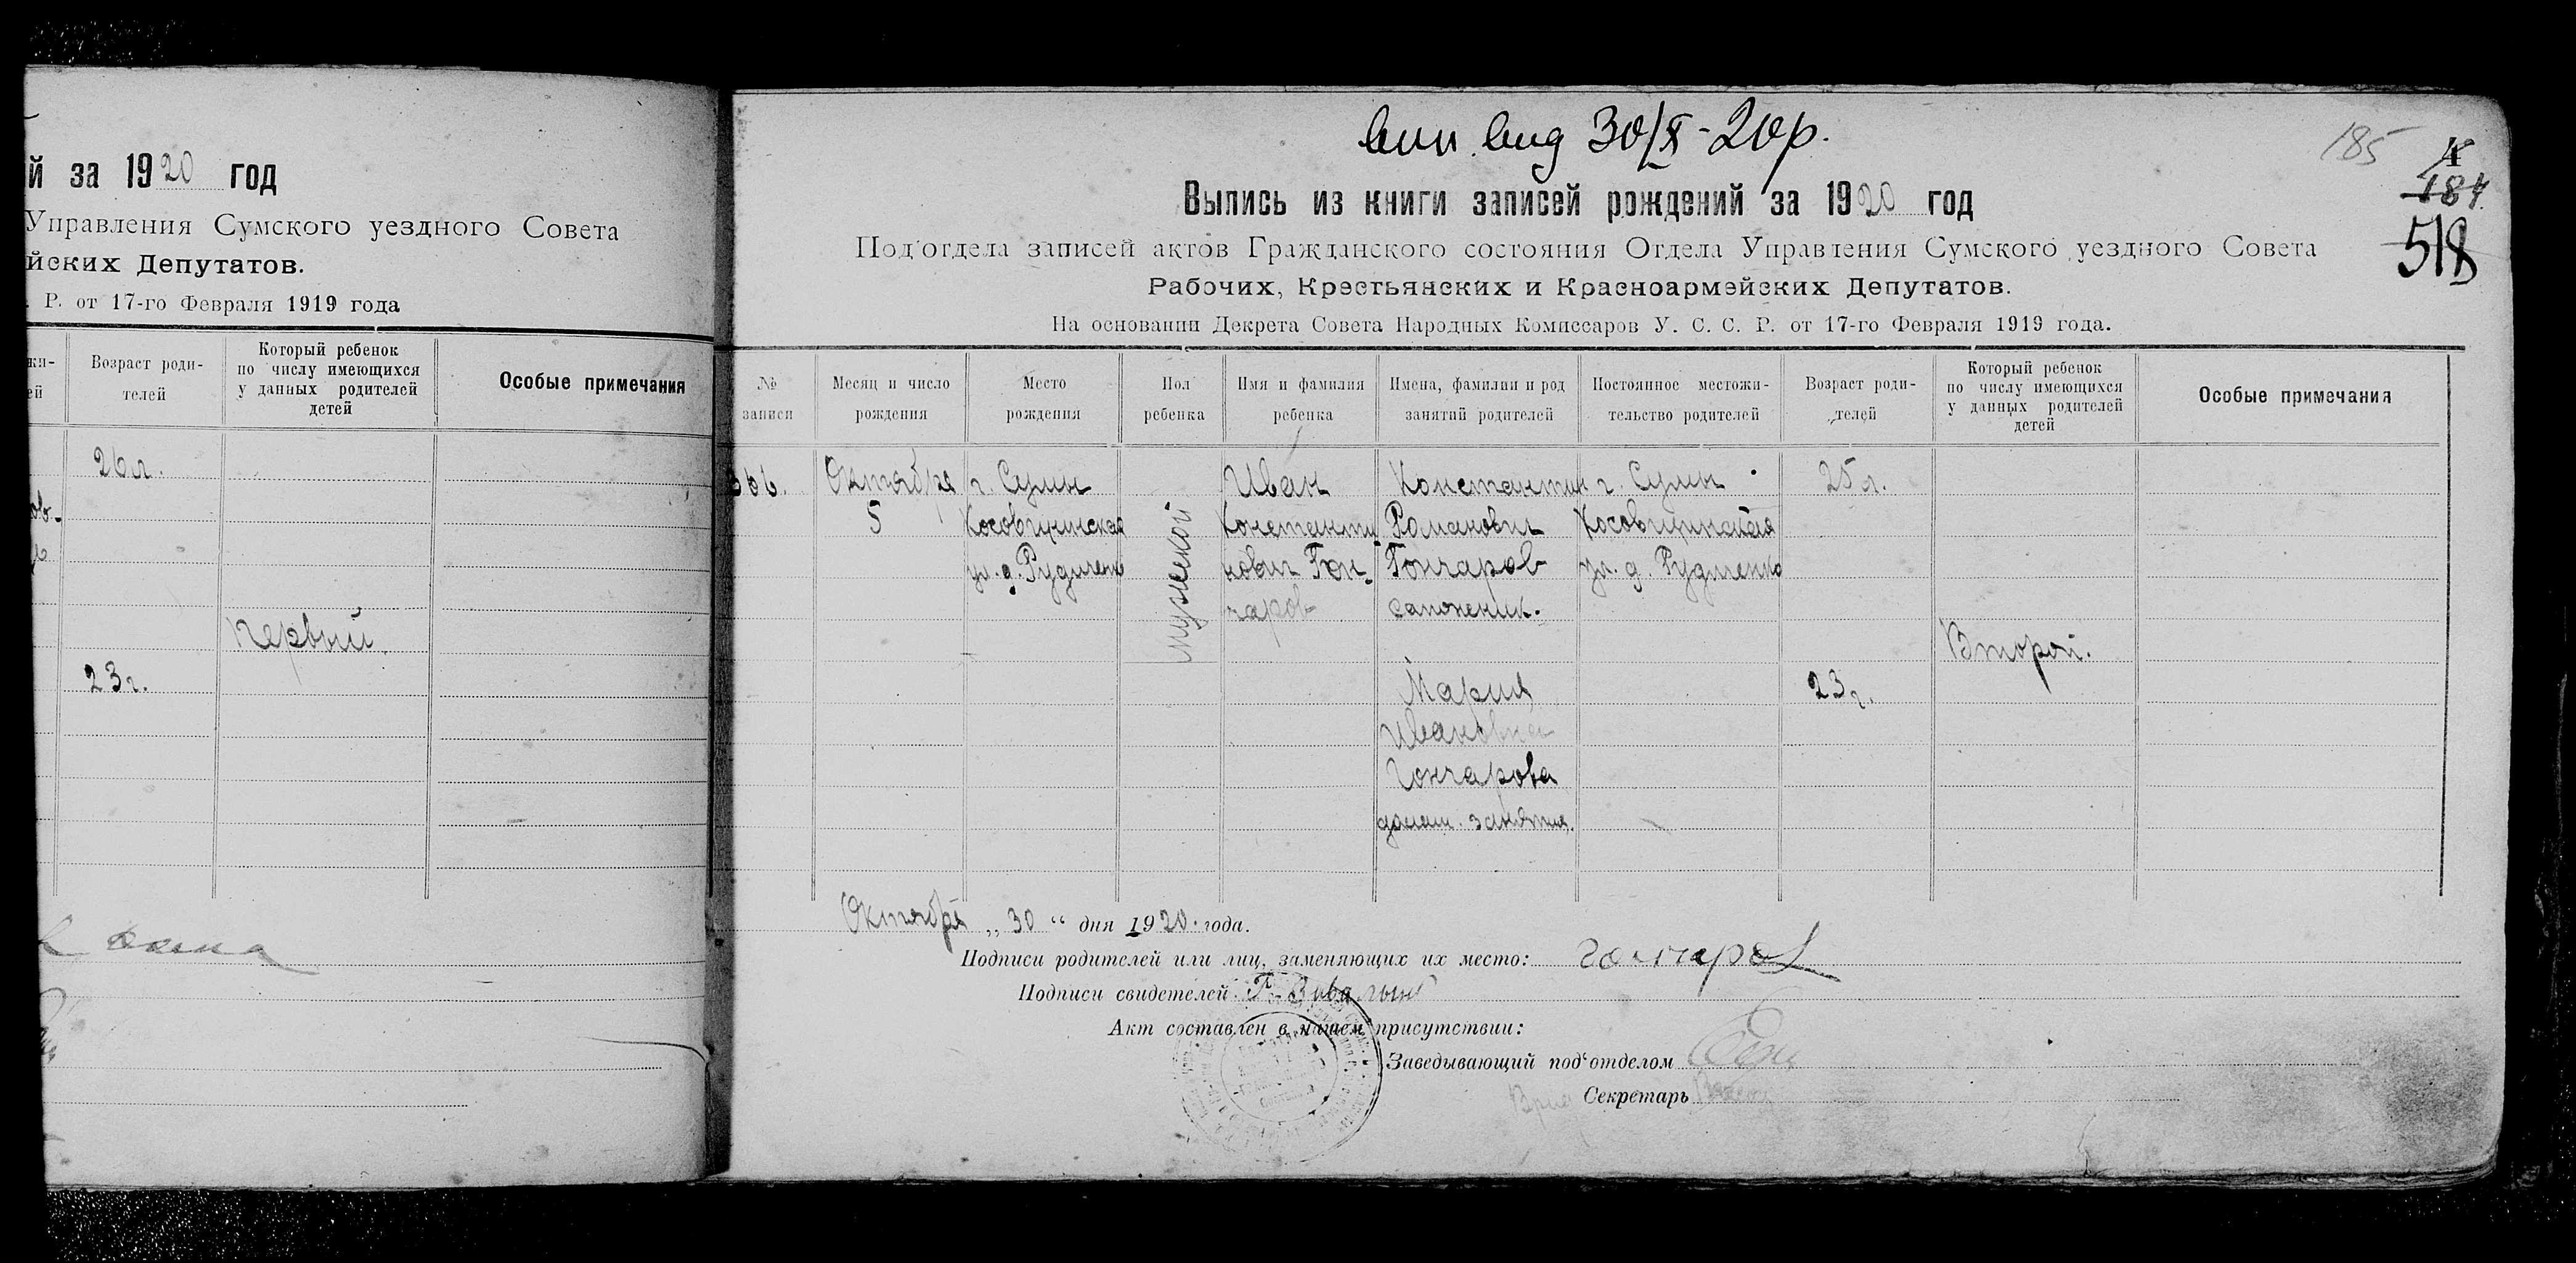 й за 1920 год
Управления Сумского уездного Совета
йских Депутатов.
. Р. от 17-го Февраля 1919 года
Возраст роди-
телей
Который ребенок
по числу имеющихся
у данных родителей
детей
Особые примечания
26 л.
первый
23 г.
30/X - 20 р.
185
184
518
Выпись из книги записей рождений за 1920 год
Под'отдела записей актов Гражданского состояния Отдела Управления Сумского уездного Совета
Рабочих, Крестьянских и Красноармейских Депутатов.
На основании Декрета Совета Народных Комиссаров У. С. С. Р. от 17-го Февраля 1919 года.
№
записи
Месяц и число
рождения
Место
рождения
Пол
ребенка
Имя и фамилия
ребенка
Имена, фамилии и род
занятий родителей
Постоянное местожи-
тельство родителей
Возраст роди-
телей
Который ребенок
по числу имеющихся
у данных родителей
детей
Особые примечания
Октября
5
г. Сумы
Косовщинская
ул. д. Руденко
мужской
Иван
Константи
нович Гон-
чаров
Константин
Романович
Гончаров
сапожник.
Мария
Ивановна
Гончарова
домаш. занятия.
г. Сумы
Косовщинская
ул. д. Руденко
25 л.
23 г.
Второй.
Октября „ 30 “ дня 1920 года.
Подписи родителей или лиц, заменяющих их место: Гончаров
Подписи свидетелей
Акт составлен в нашем присутствии:
Заведывающий под'отделом
Секретарь